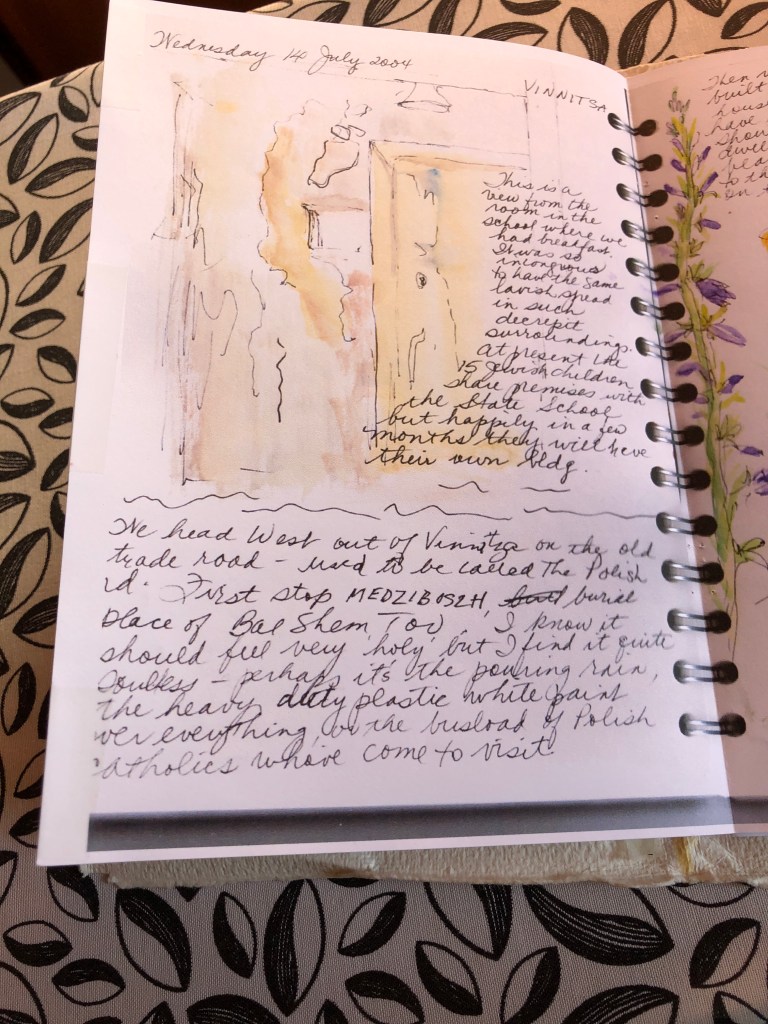 Wednesday 14 July 2004
VINNITSA
This is a
view from the
room in the
school where we
had breakfast.
It was so
incongruous
to have the same
lavish spread
in such
decrepit
surroundings.
At present the
15 Jewish children
share premises with
the State School
but happily in a few
months they will have
their own bldg.
We head West out of Vinnitsa on the old
trade road - used to be called The Polish
rd. First stop MEDZIBOSZH, burial
place of Bal Shem Tov, I know it
should feel very 'holy' but I find it quite
soulless - perhaps it's the pouring rain,
the heavy duty plastic white paint
over everything, or the busload of Polish
Catholics who've come to visit
Then
built
hous
have
Shou
dwell
to th
on